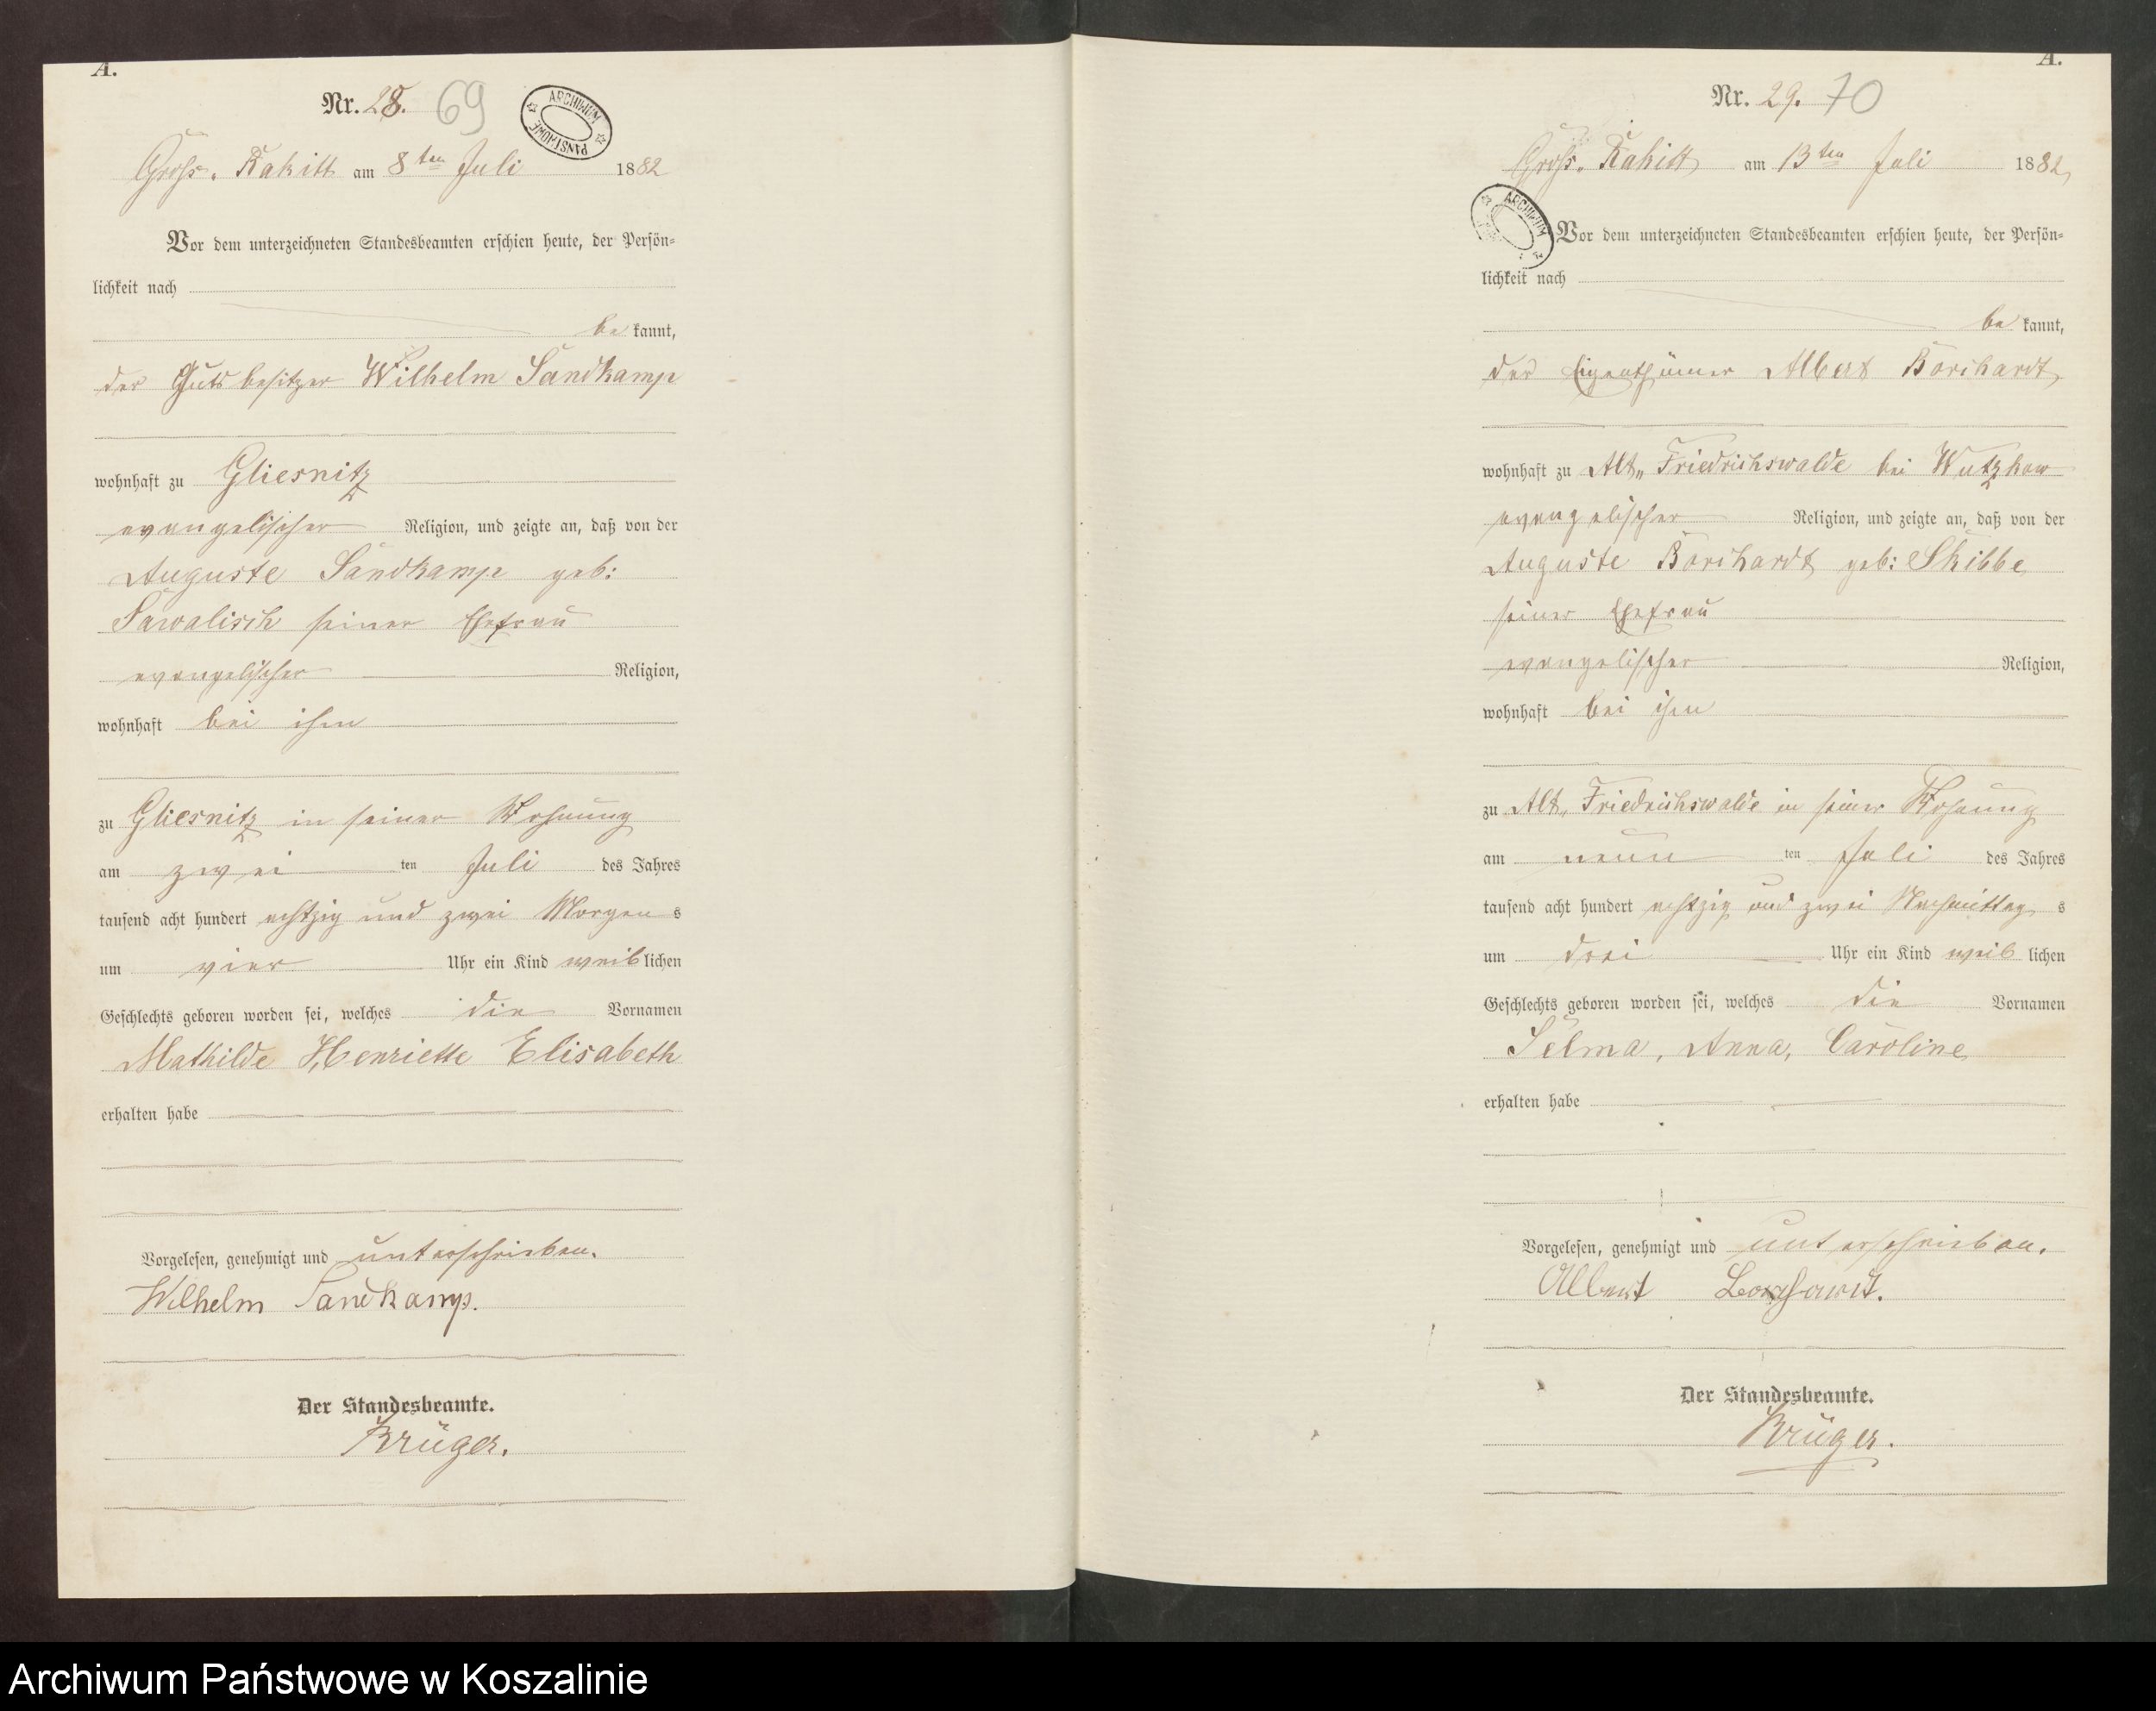 A.
Nr. 28. 69
ARCHIWUM PAŃSTWOWE
Gross. Rakitt am 8ten Juli 1882
Vor dem unterzeichneten Standesbeamten erschien heute, der Persön=
lichkeit nach
be kannt,
der Gutsbesitzer Wilhelm Sandkamp
wohnhaft zu Gliesnitz
evangelischer Religion, und zeigte an, daß von der
Auguste Sandkamp geb:
Sawalisch seiner Ehefrau
evangelischer Religion,
wohnhaft bei ihm
zu Gliesnitz in seiner Wohnung
am zwei ten Juli des Jahres
tausend acht hundert achtzig und zwei Morgens
um vier Uhr ein Kind weiblichen
Geschlechts geboren worden sei, welches die Vornamen
Mathilde Henriette Elisabeth
erhalten habe
Vorgelesen, genehmigt und unterschrieben.
Wilhelm Sandkamp.
Der Standesbeamte.
Krüger.
A.
Nr. 29. 70
Gross. Rakitt am 13ten Juli 1882
ARCHIWUM
Vor dem unterzeichneten Standesbeamten erschien heute, der Persön=
lichkeit nach
be kannt,
der Eigenthümer Albert Borchardt
wohnhaft zu Alt„ Friedrichswalde bei Wutzkow
evangelischer Religion, und zeigte an, daß von der
Auguste Borchardt geb: Skibbe
seiner Ehefrau
evangelischer Religion,
wohnhaft bei ihm
zu Alt„ Friedrichswalde in seiner Wohnung
am neun ten Juli des Jahres
tausend acht hundert achtzig und zwei Nachmittags
um drei Uhr ein Kind weiblichen
Geschlechts geboren worden sei, welches die Vornamen
Selma, Anna, Caroline
erhalten habe
Vorgelesen, genehmigt und unterschrieben.
Albert Borchardt.
Der Standesbeamte.
Krüger.
Archiwum Państwowe w Koszalinie